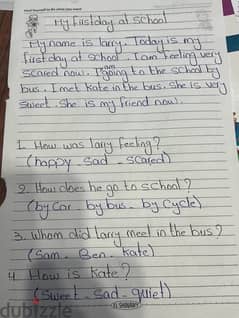 My first day at school
My name is larry. Today is my
first day at school. I am feeling very
scared now. I am going to the school by
bus. I met Kate in the bus. She is very
sweet. She is my friend now.
1. How was larry feeling?
(happy - sad - scared)
2. How does he go to school?
(by car - by bus - by cycle)
3. Whom did larry meet in the bus?
(Sam - Ben - Kate)
4. How is Kate?
(sweet - sad - quiet)
dubizzle